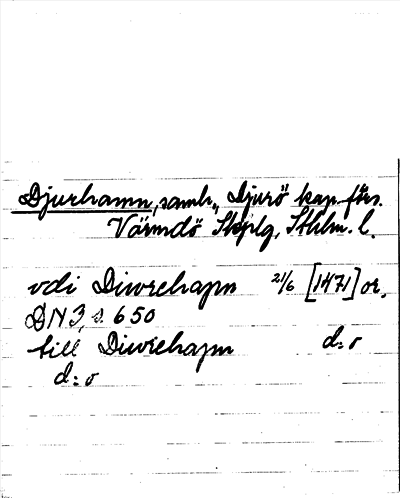 Djurhamn, samh., Djurö kap.förs.
Värmdö Skplg, Sthlm. l.
vdi Diwrehapn 21/6 [1471] or.
DN 3, s. 650
till Diwrehapn d:o
d:o